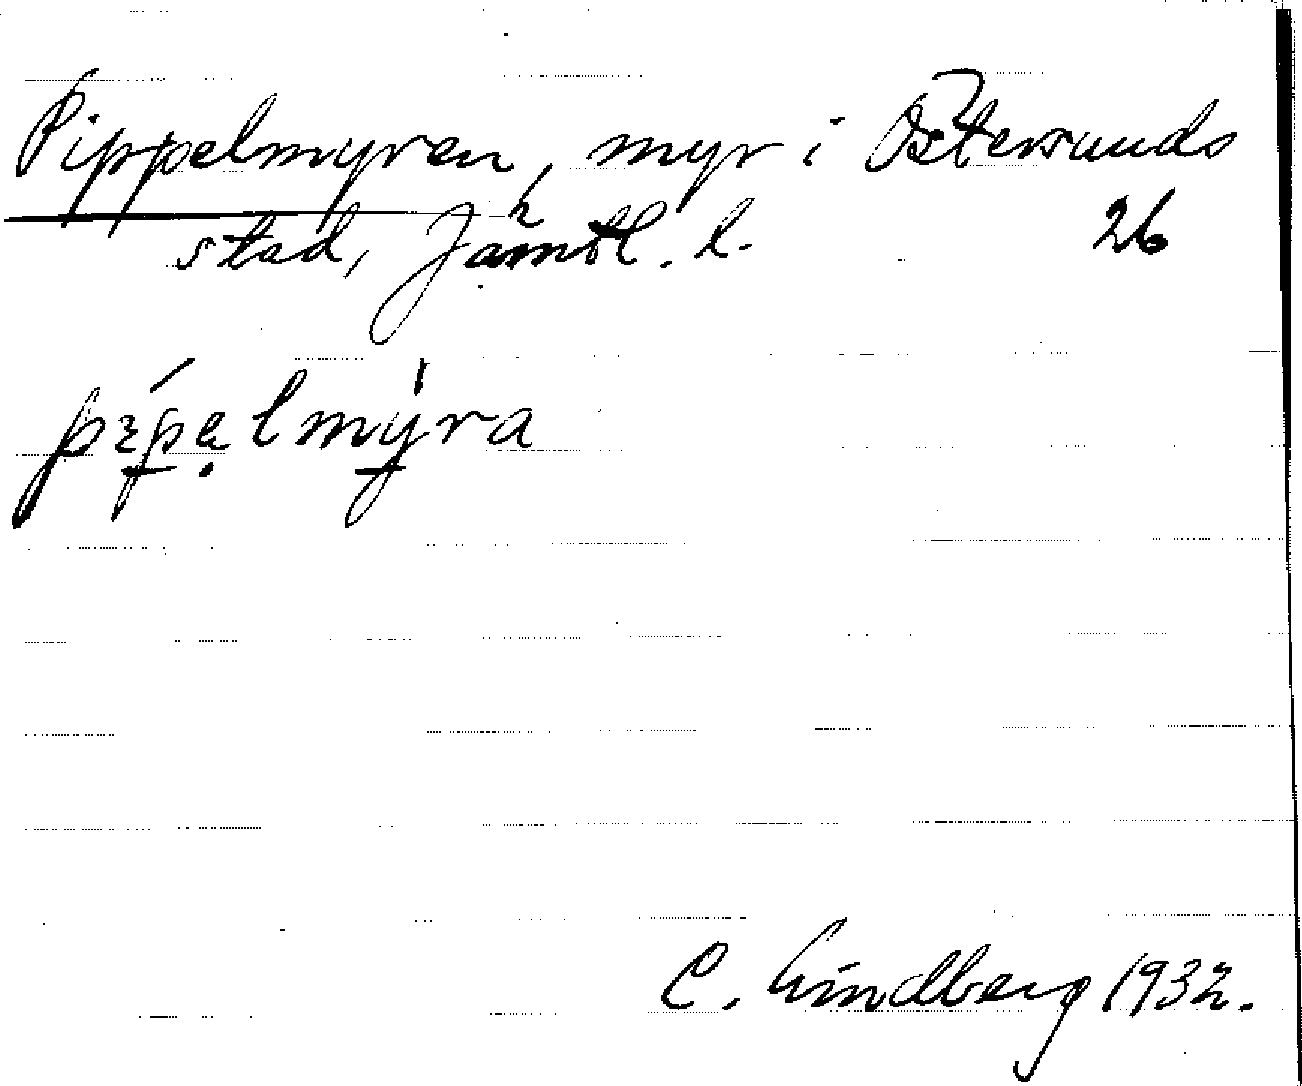 Pippelmyren, myr i Östersunds
stad, Jämtl. l. 26
pɪ́pelmýra
C. Lindberg 1932.